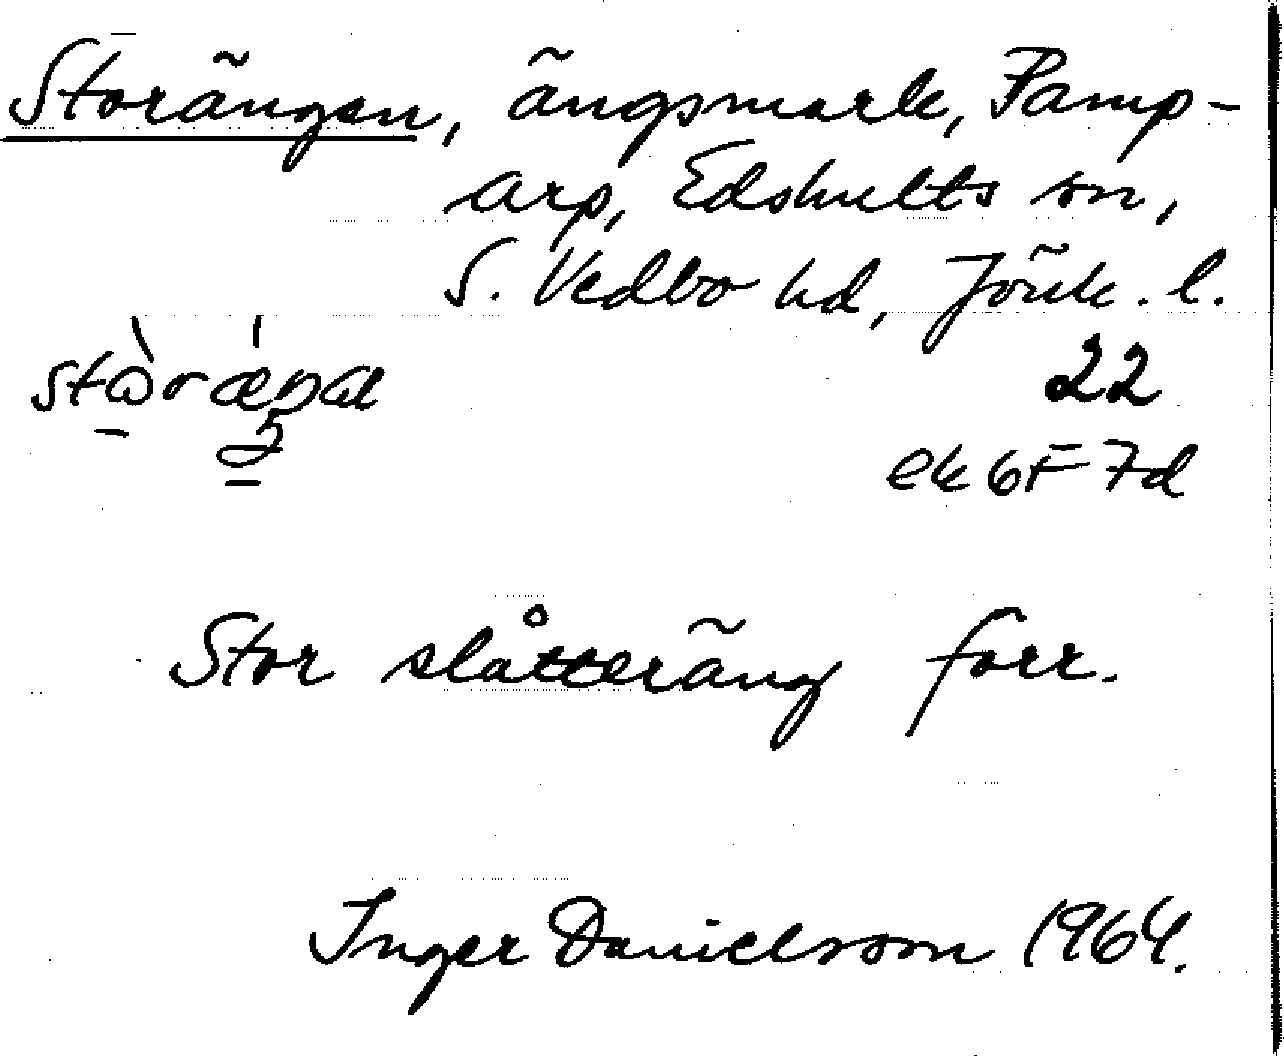 Storängen, ängsmark, Pamp-
arp, Edshults sn,
S. Vedbo hd, Jönk. l.
22
ek 6F 7d
Stor slåtteräng förr.
Inger Danielsson 1964.